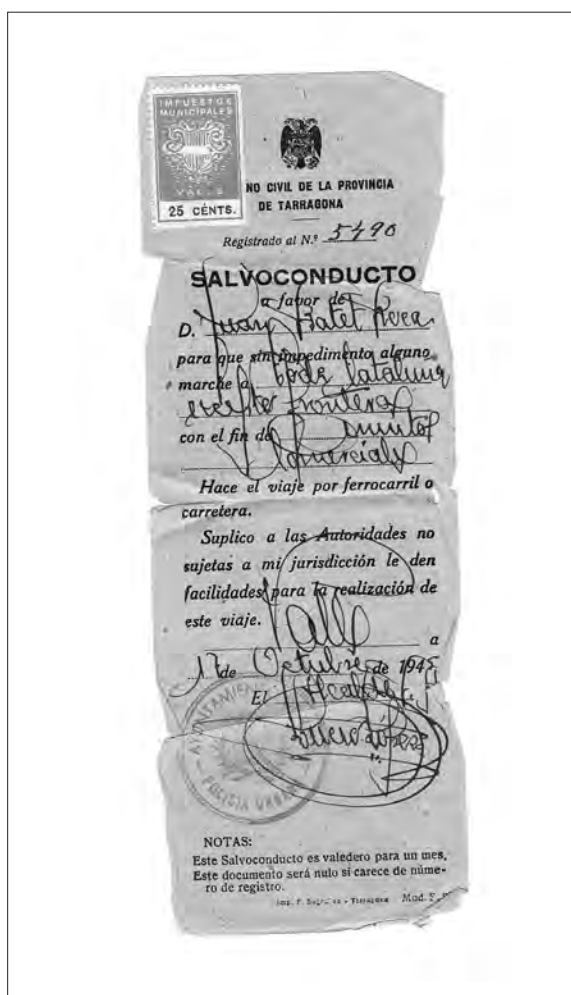 IMPUESTOS
MUNICIPALES
VALLS
25 CÉNTS.
NO CIVIL DE LA PROVINCIA
DE TARRAGONA
Registrado al N.º 5490
SALVOCONDUCTO
a favor de
D. Juan Batet
para que sin impedimento alguno
marche a toda Cataluña
excepto fronteras
con el fin de asuntos
Comerciales
Hace el viaje por ferrocarril o
carretera.
Suplico a las Autoridades no
sujetas a mi jurisdicción le den
facilidades para la realización de
este viaje.
Valls a
17 de Octubre de 1945
El Alcalde
AYUNTAMIENTO
POLICIA URBANA
NOTAS:
Este Salvoconducto es valedero para un mes.
Este documento será nulo si carece de núme-
ro de registro.
Imp. - Tarragona Mod.